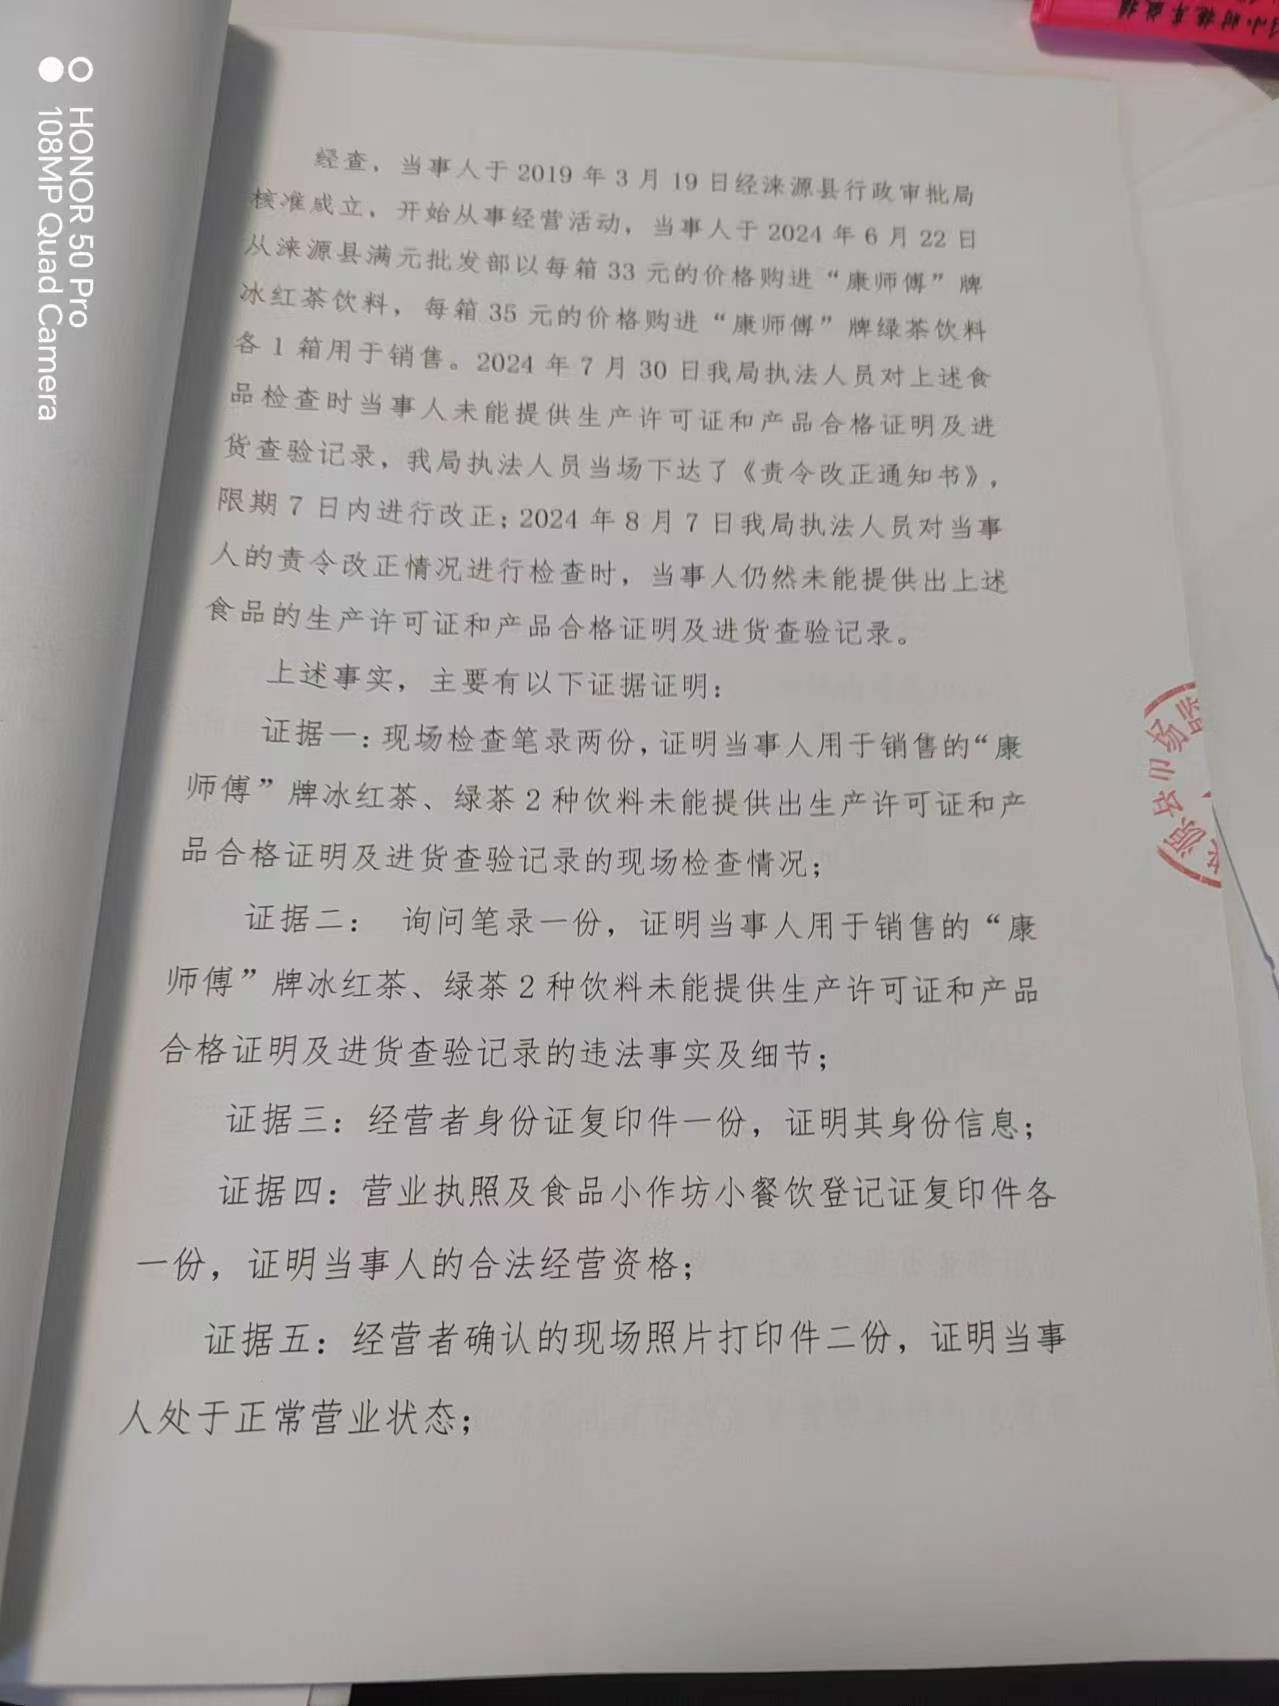 经查，当事人于 2019 年 3 月 19 日经涞源县行政审批局
核准成立，开始从事经营活动，当事人于 2024 年 6 月 22 日
从涞源县满元批发部以每箱 33 元的价格购进“康师傅”牌
冰红茶饮料，每箱 35 元的价格购进“康师傅”牌绿茶饮料
各 1 箱用于销售。2024 年 7 月 30 日我局执法人员对上述食
品检查时当事人未能提供生产许可证和产品合格证明及进
货查验记录，我局执法人员当场下达了《责令改正通知书》，
限期 7 日内进行改正；2024 年 8 月 7 日我局执法人员对当事
人的责令改正情况进行检查时，当事人仍然未能提供出上述
食品的生产许可证和产品合格证明及进货查验记录。
上述事实，主要有以下证据证明：
证据一：现场检查笔录两份，证明当事人用于销售的“康
师傅”牌冰红茶、绿茶 2 种饮料未能提供出生产许可证和产
品合格证明及进货查验记录的现场检查情况；
证据二： 询问笔录一份，证明当事人用于销售的“康
师傅”牌冰红茶、绿茶 2 种饮料未能提供生产许可证和产品
合格证明及进货查验记录的违法事实及细节；
证据三：经营者身份证复印件一份，证明其身份信息；
证据四：营业执照及食品小作坊小餐饮登记证复印件各
一份，证明当事人的合法经营资格；
证据五：经营者确认的现场照片打印件二份，证明当事
人处于正常营业状态；
源县市场监
HONOR 50 Pro
108MP Quad Camera